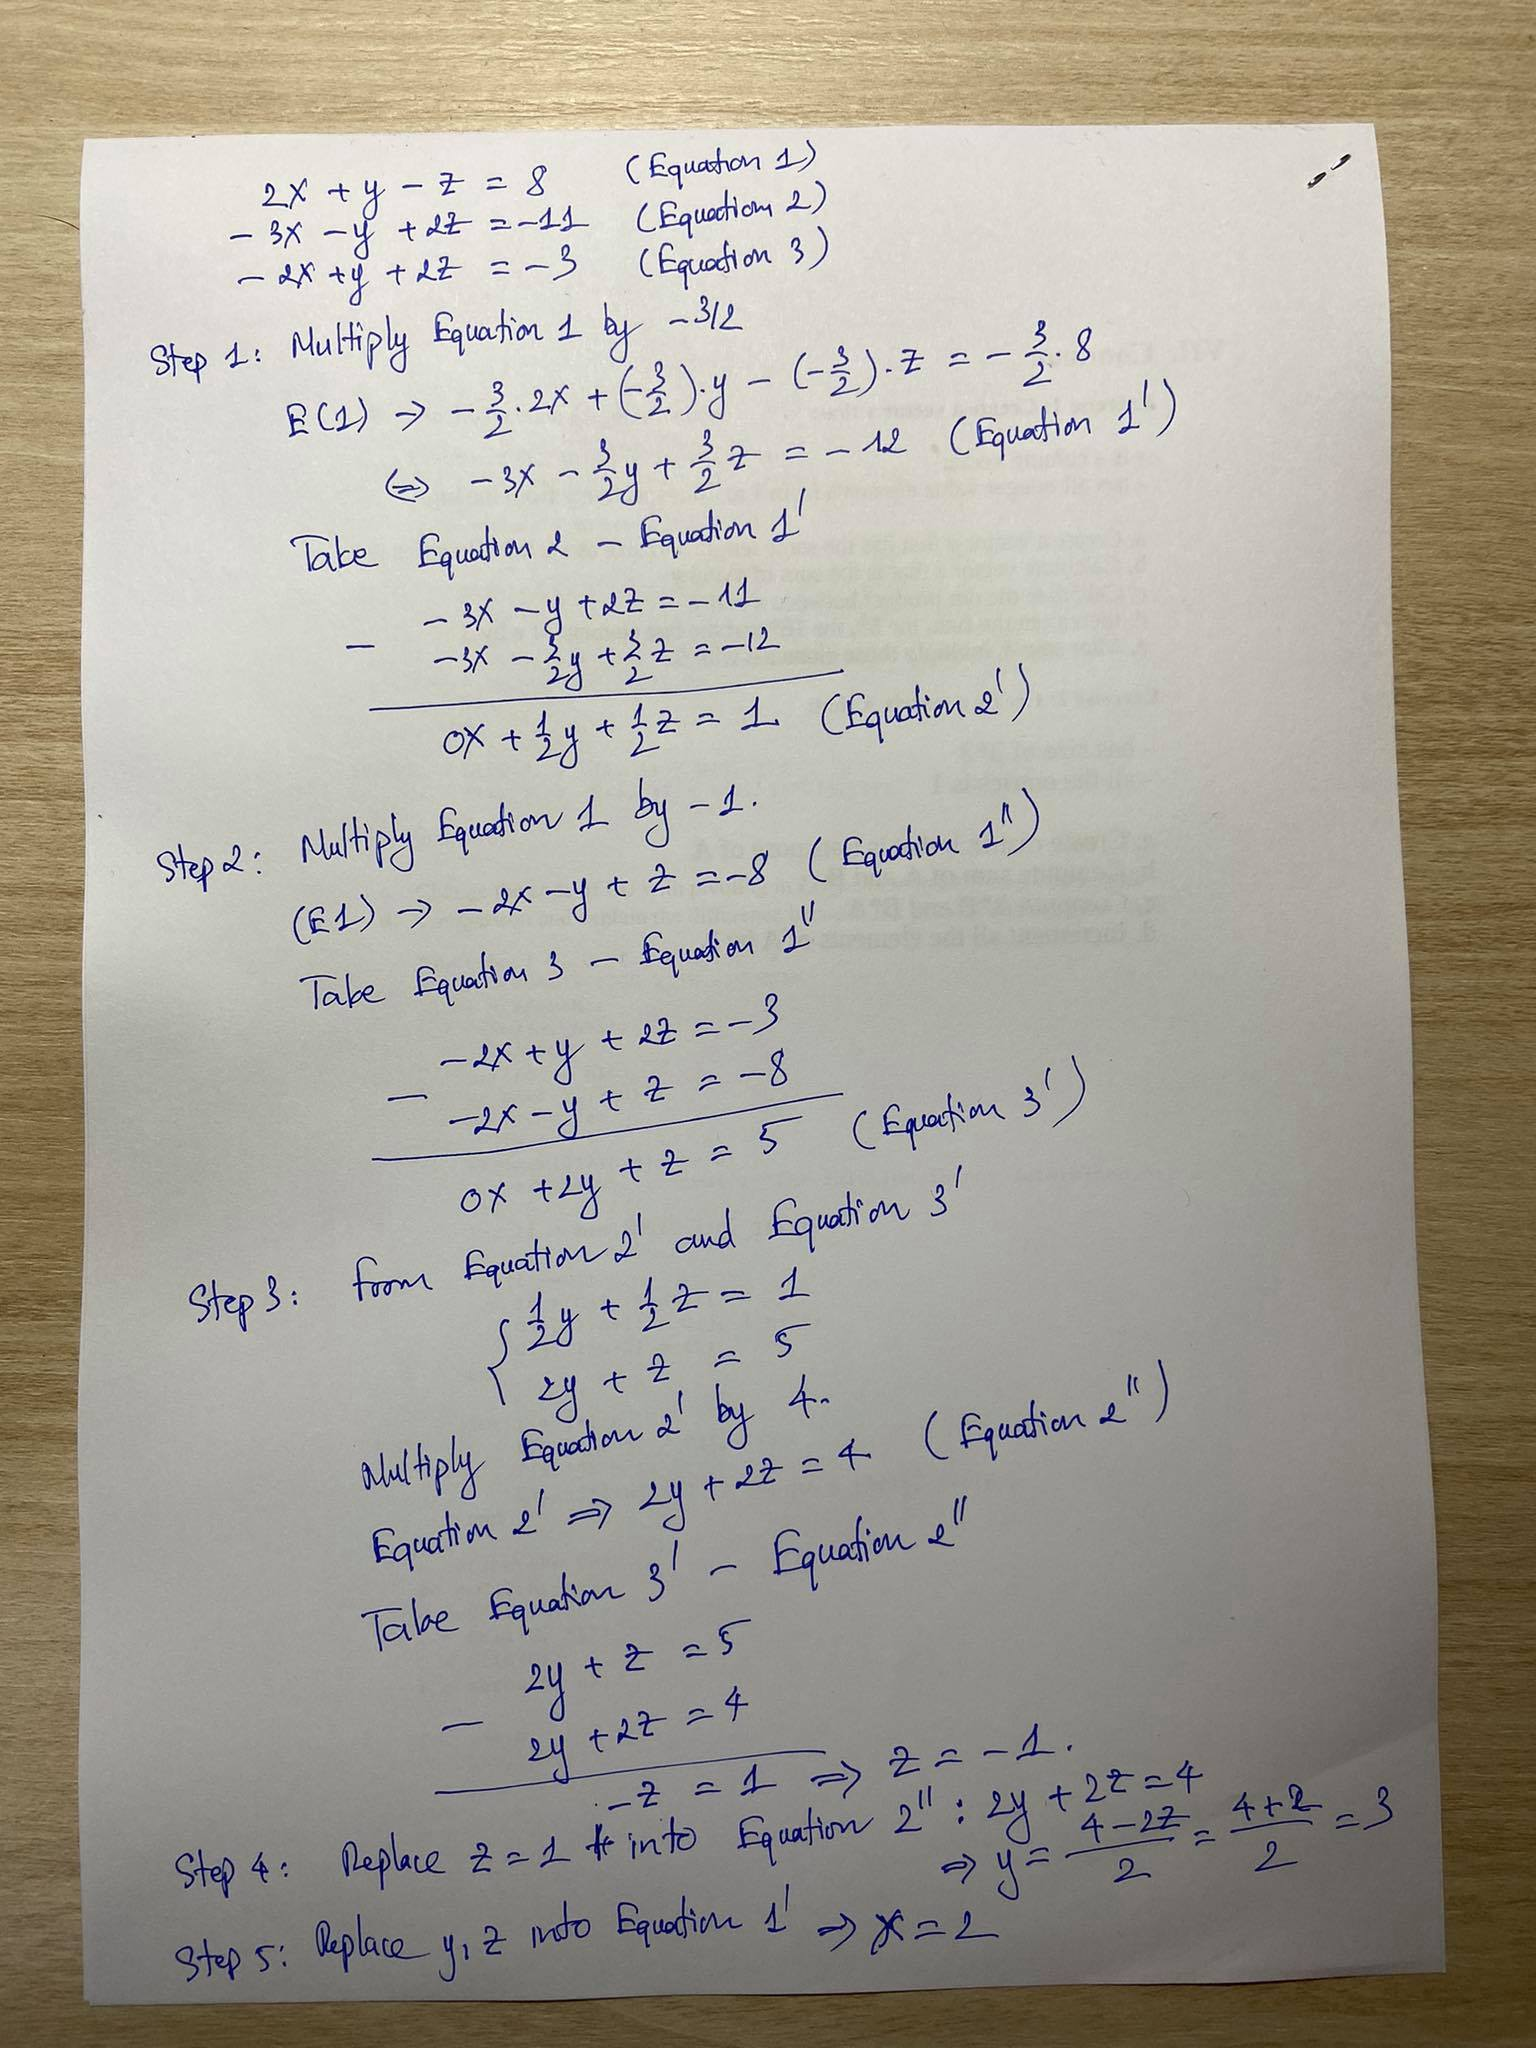 2x + y - z = 8 (Equation 1)
- 3x - y + 2z = -11 (Equation 2)
- 2x + y + 2z = -3 (Equation 3)
Step 1: Multiply Equation 1 by -3/2
E(1) → -3/2 . 2x + (-3/2).y - (-3/2).z = -3/2 . 8
⇔ -3x - 3/2y + 3/2z = -12 (Equation 1')
Take Equation 2 - Equation 1'
- 3x - y + 2z = -11
- -3x - 3/2y + 3/2z = -12
0x + 1/2y + 1/2z = 1 (Equation 2')
Step 2: Multiply Equation 1 by -1.
(E1) → -2x - y + z = -8 (Equation 1'')
Take Equation 3 - Equation 1''
-2x + y + 2z = -3
- -2x - y + z = -8
0x + 2y + z = 5 (Equation 3')
Step 3: From Equation 2' and Equation 3'
{ 1/2y + 1/2z = 1
2y + z = 5
Multiply Equation 2' by 4.
Equation 2' ⇒ 2y + 2z = 4 (Equation 2'')
Take Equation 3' - Equation 2''
2y + z = 5
- 2y + 2z = 4
-z = 1 ⇒ z = -1.
Step 4: Replace z = 1 into Equation 2'': 2y + 2z = 4
⇒ y = (4 - 2z)/2 = (4 + 2)/2 = 3
Step 5: Replace y, z into Equation 1' ⇒ x = 2